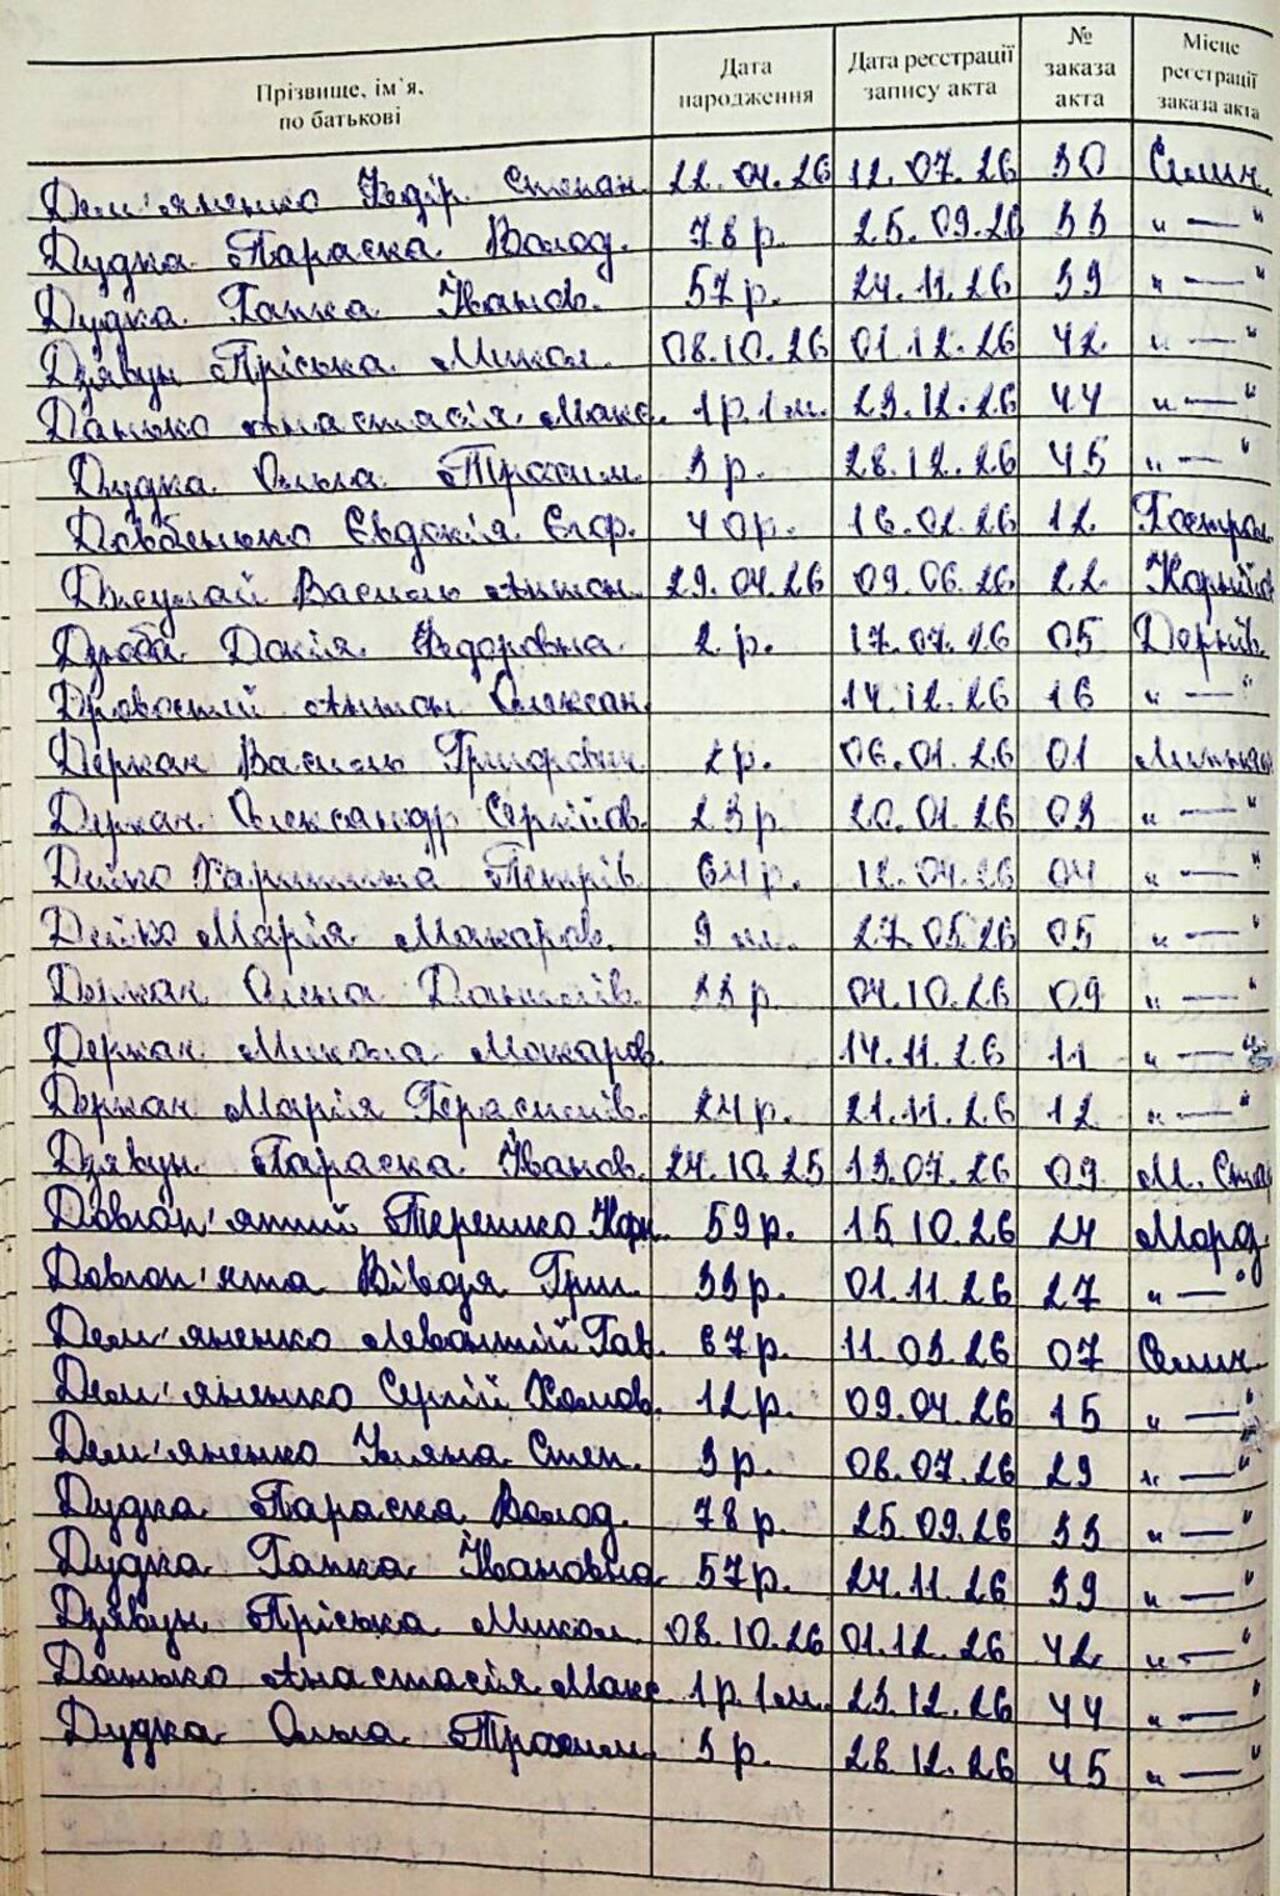 Прізвище, ім'я, по батькові | Дата народження | Дата реєстрації запису акта | № заказа акта | Місце реєстрації заказа акта
Дем'яненко Федір Степан. 22.04.26 12.07.26 30 Селич.
Дудка Параска Волод. 78 р. 25.09.26 33 " — "
Дудка Ганна Іванов. 57 р. 24.11.26 39 " — "
Дзявун Пріська Микол. 08.10.26 01.12.26 42 " — "
Данько Анастасія Макс. 1 р. 1 м. 23.12.26 44 " — "
Дудка Ольга Трохим. 3 р. 28.12.26 45 " — "
Довбенько Євдокія Єгор. 40 р. 16.02.26 12
Василь Антон. 29.04.26 09.06.26 22
Дзюба Докія Федоровна 2 р. 17.07.26 05
Антон Олексан. 14.12.26 16 " — "
Деркач Василь Григорович 2 р. 06.01.26 01
Деркач Олександр Сергійов. 23 р. 20.01.26 03 " — "
Дейко Харитина Петрів. 64 р. 12.04.26 04 " — "
Дейко Марія Макаров. 9 м. 27.05.26 05 " — "
Деркач Олена Данилів. 33 р. 04.10.26 09 " — "
Деркач Микола Макаров. 14.11.26 11 " — "
Деркач Марія Герасимів. 24 р. 21.11.26 12 " — "
Дзявун Параска Іванов. 24.10.25 13.07.26 09 М.
Довгоп'ятий Терешко Корн. 59 р. 15.10.26 24 Мороз.
Довгоп'ята Вівдя Григ. 33 р. 01.11.26 27 " — "
Дем'яненко Левонтій Гав. 67 р. 11.03.26 07 Селич.
Дем'яненко Сергій Хомов. 12 р. 09.04.26 15 " — "
Дем'яненко Уляна Степ. 3 р. 08.07.26 29 " — "
Дудка Параска Волод. 78 р. 25.09.26 33 " — "
Дудка Ганна Івановна 57 р. 24.11.26 39 " — "
Дзявун Пріська Микол. 08.10.26 01.12.26 42 " — "
Данько Анастасія Макс. 1 р. 1 м. 23.12.26 44 " — "
Дудка Ольга Трохим. 3 р. 28.12.26 45 " — "